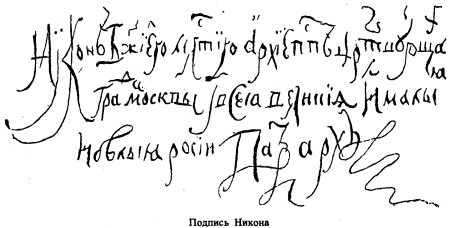 Нїконъ Бжїею млстїю архїеппъ црствующаго
града москвы и всеа великия и малыя
и белыя росіи Патриархъ
Подпись Никона